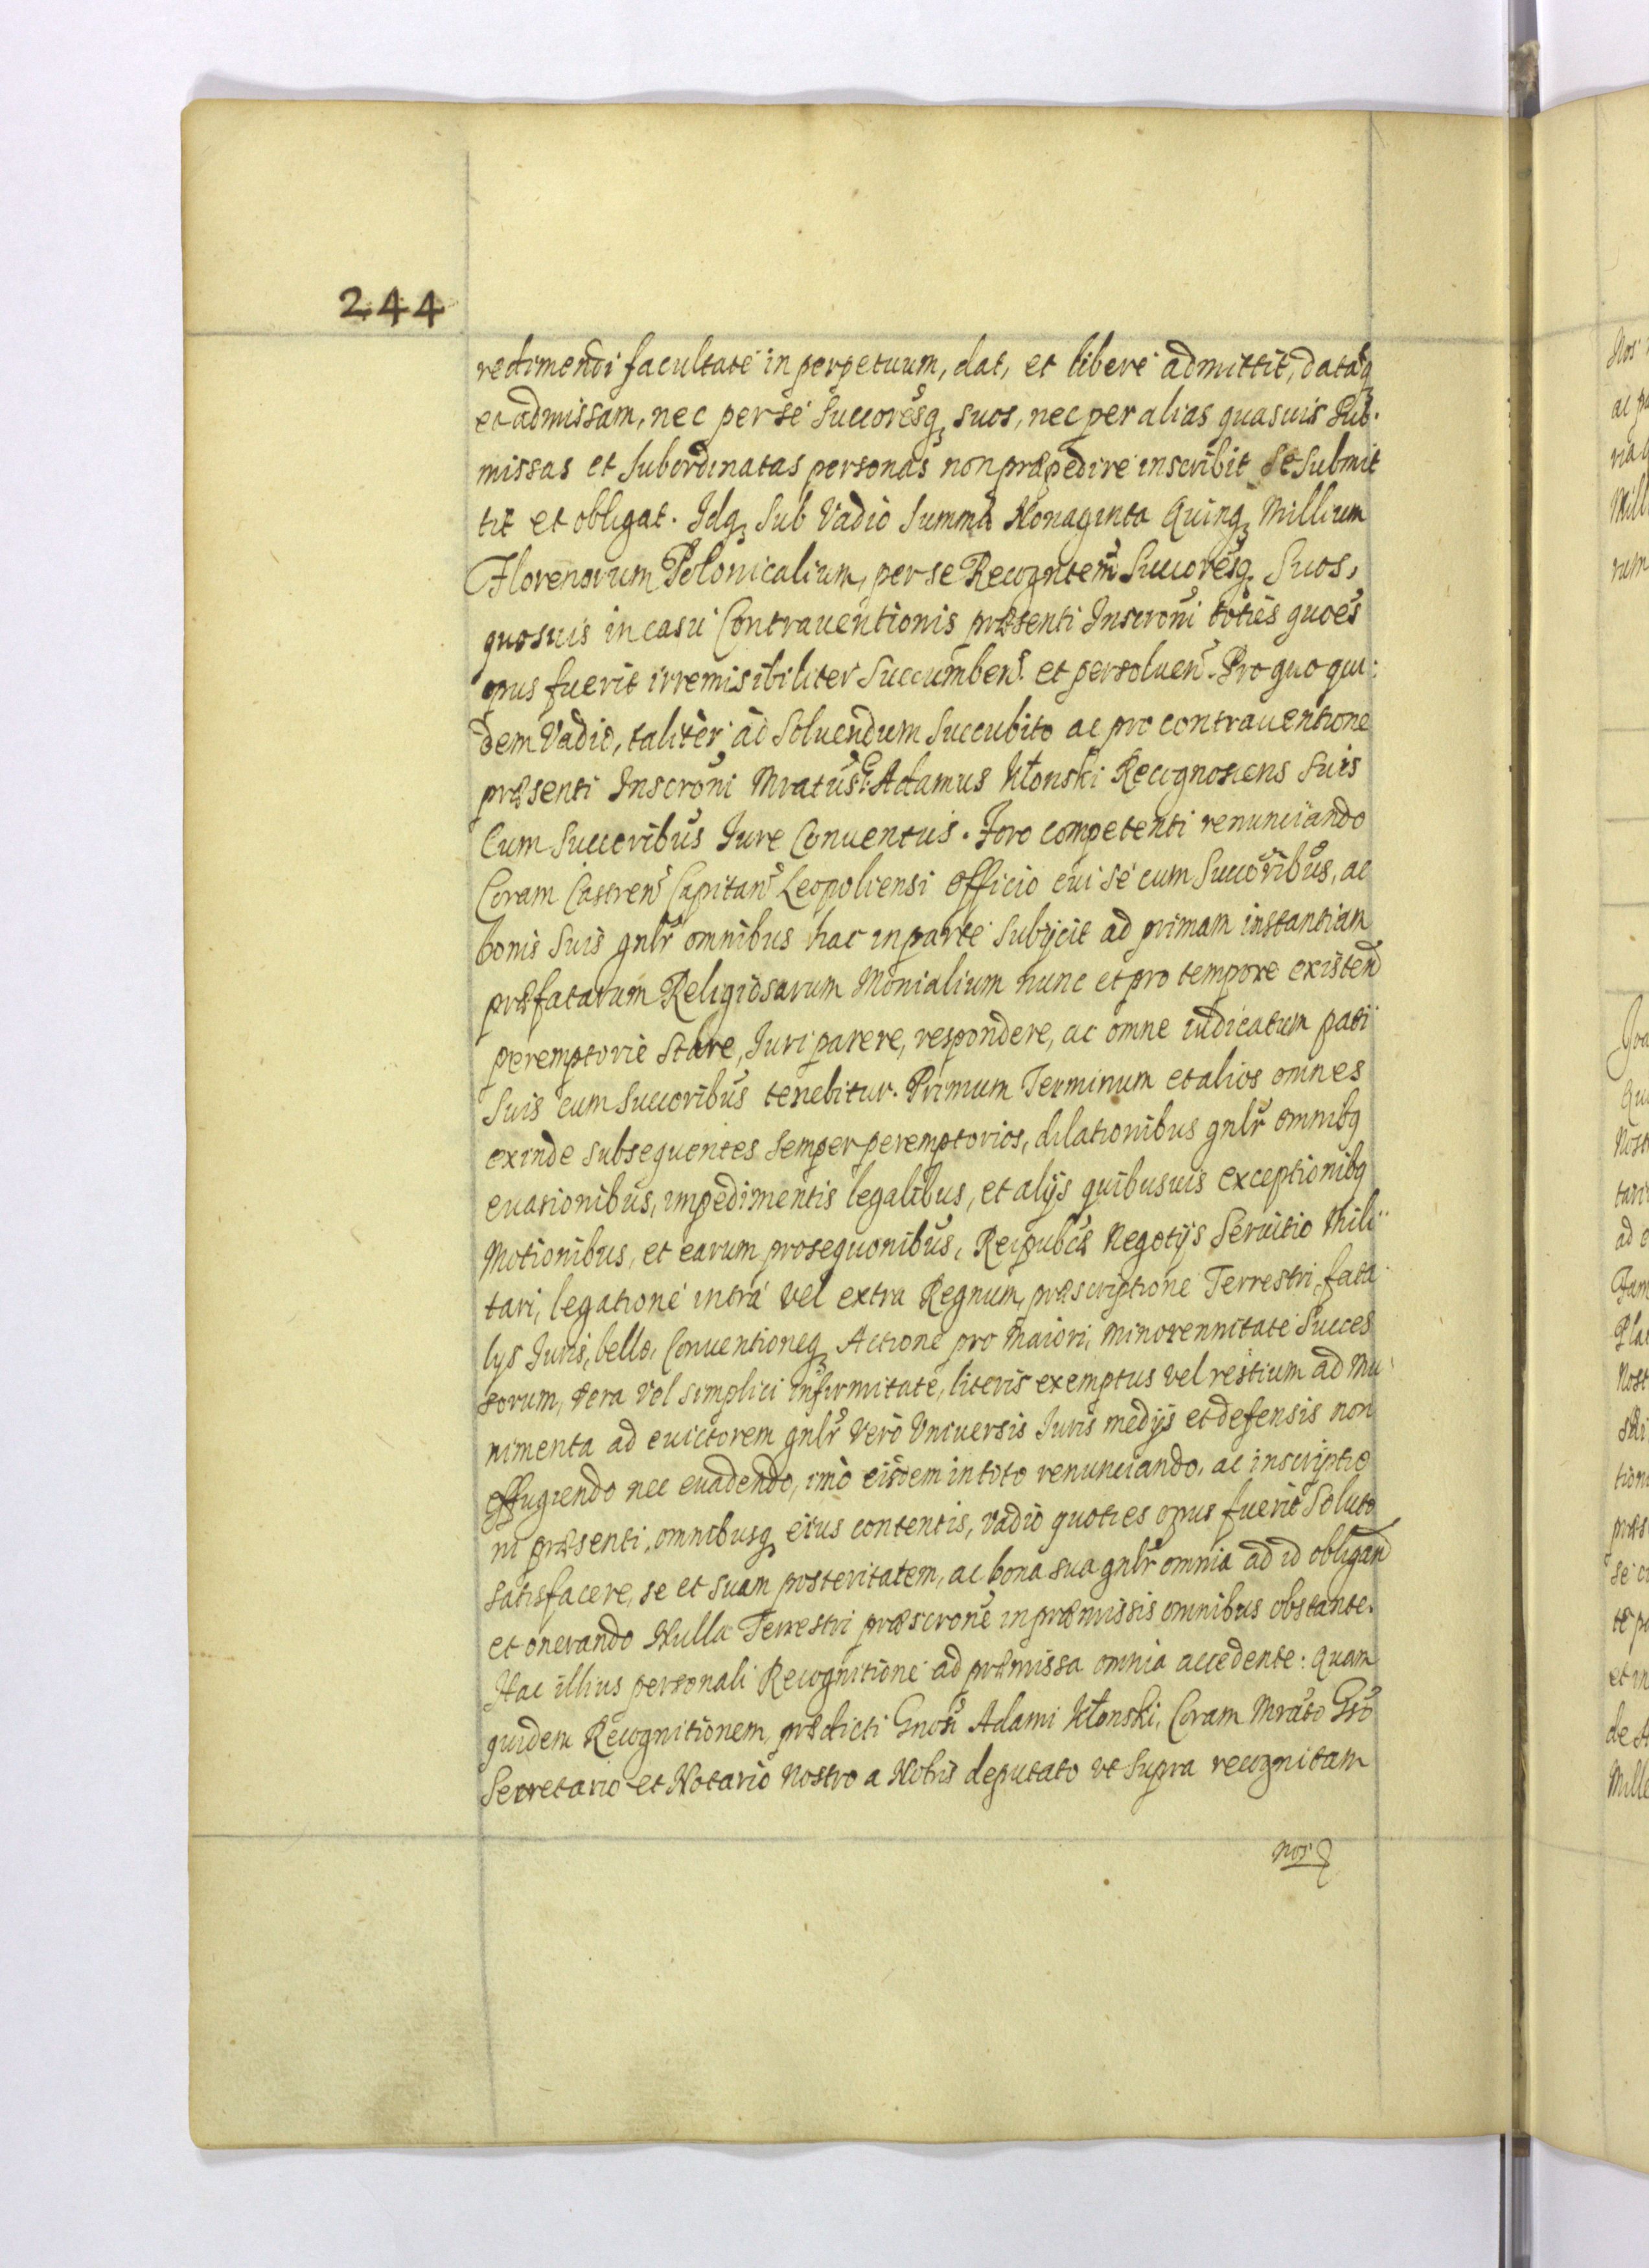 244
redimendi facultaté in perpetuum, dat, et liberé admittit, datāq
et admissam, nec per sé Succoresq suos, nec per alias quasuis Sub.
missas et Subordinatas personas non præpediré inscribit Se Submit
tit et obligat. Idq Sub Vadio Summa Nonaginta Quinq Millium
Florenorum Polonicalium, per se Recogntem Succoresq Suos,
quosuis in casu Contrauentionis præsenti Inscroni toties quoés
opus fuerit irremisibiliter Succumben et persoluen. Pro quo qui:
dem Vadio, taliter ad Soluendum Succubito ac pro contrauentione
præsenti Inscroni Mratus G. Adamus Kłonski Recognoscens Suis
Cum Succoribus Iure Conuentus. Foro competenti renunciando
Coram Castren Capitan Leopoliensi officio cui sé cum Succoribus, ac
bonis Suis gnlr omnibus hac in parte Subijcit ad primam instantiam
præfatarum Religiosarum Monialium nunc et pro tempore existend
peremptorie Stare, Iuri parere, respondere, ac omne iudicatum pati
Suis cum Succoribus tenebitur. Primum Terminum et alios omnes
exinde subsequentes semper peremptorios, dilationibus gnlr omnibq
euasionibus, impedimentis legalibus, et alijs quibusuis exceptionibq
Motionibus, et earum prosequonibus, Reipublcæ Negotijs Seruitio Mili
tari, legationé intrá vel extra Regnum, præscriptione Terrestri fata
lys Iuris, bello, Conuentioneq Actione pro Maiori, minorennitaté Succes
sorum, Vera vel simplici infirmitate, literis exemptus vel restium ad Mu
nimenta ad euictorem gnlr Vero Vniuersis Iuris medijs et defensis non
effugiendo nec euadendo, imo eisdem in toto renunciando, ac inscriptio
ni præsenti, omnibusq eius contentis, vadio quoties opus fuerit Soluto
satisfacere, se et suam posteritatem, ac bona sua gnlr omnia ad id obligand
et onerando Nulla Terrestri præscrone in præmissis omnibus obstante.
Hac illius personali Recognitioné ad præmissa omnia accedente: Quam
quidem Recognitionem, prædicti Gnosi Adami Kłonski, Coram Mrato Gso
Secretario et Notario Nostro a Nobis deputato vt Supra recognitam
nos